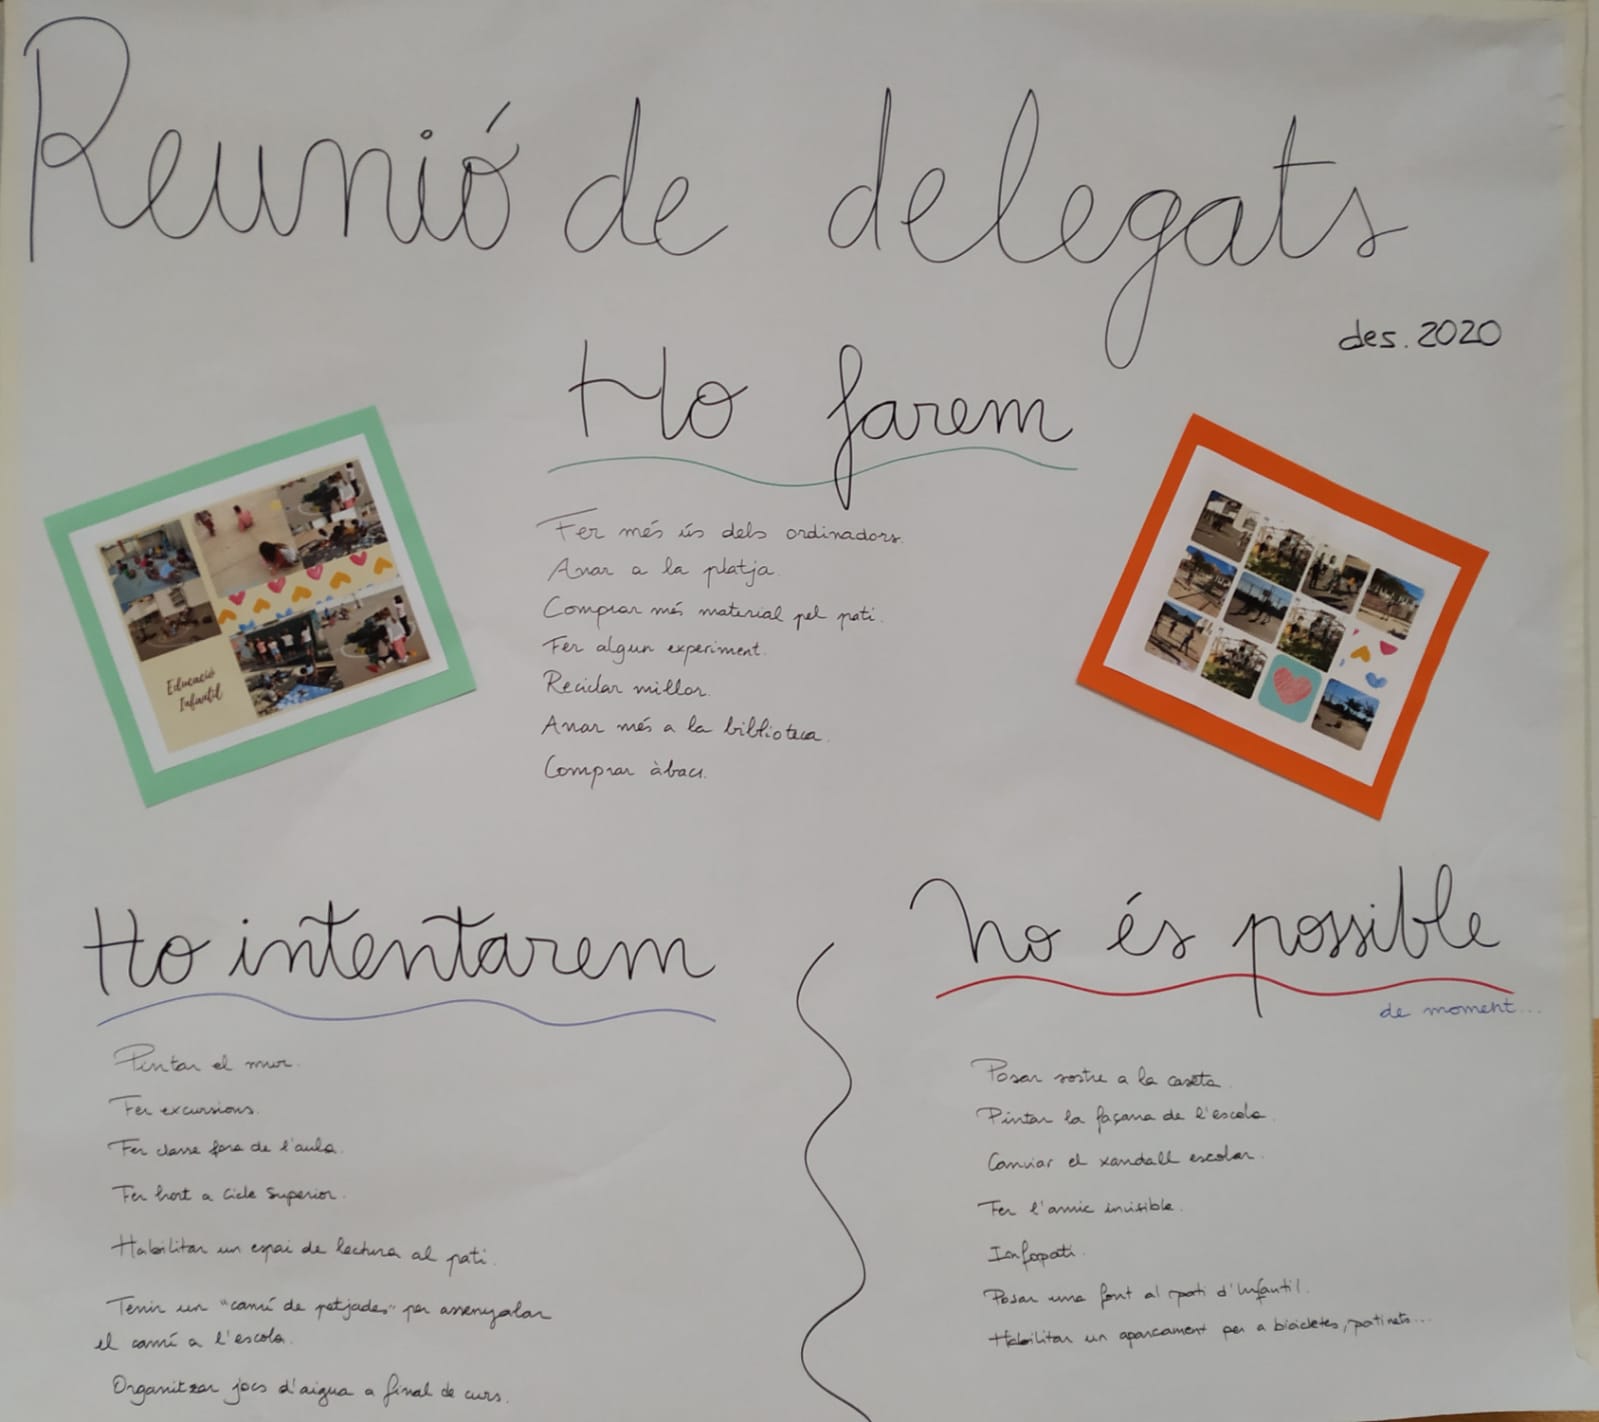 Reunió de delegats
des. 2020
Ho farem
Fer més ús dels ordinadors.
Anar a la platja.
Comprar més material pel pati.
Fer algun experiment.
Reciclar millor.
Anar més a la biblioteca.
Comprar àbacs.
Educació
Infantil
Ho intentarem
Pintar el mur.
Fer excursions.
Fer classe fora de l'aula.
Fer hort a Cicle Superior.
Habilitar un espai de lectura al pati.
Tenir un "camí de petjades" per assenyalar
el camí a l'escola.
Organitzar jocs d'aigua a final de curs.
No és possible
de moment...
Posar sostre a la caseta.
Pintar la façana de l'escola.
Canviar el xandall escolar.
Fer l'amic invisible.
Infopati.
Posar una font al pati d'Infantil.
Habilitar un aparcament per a bicicletes, patinets...